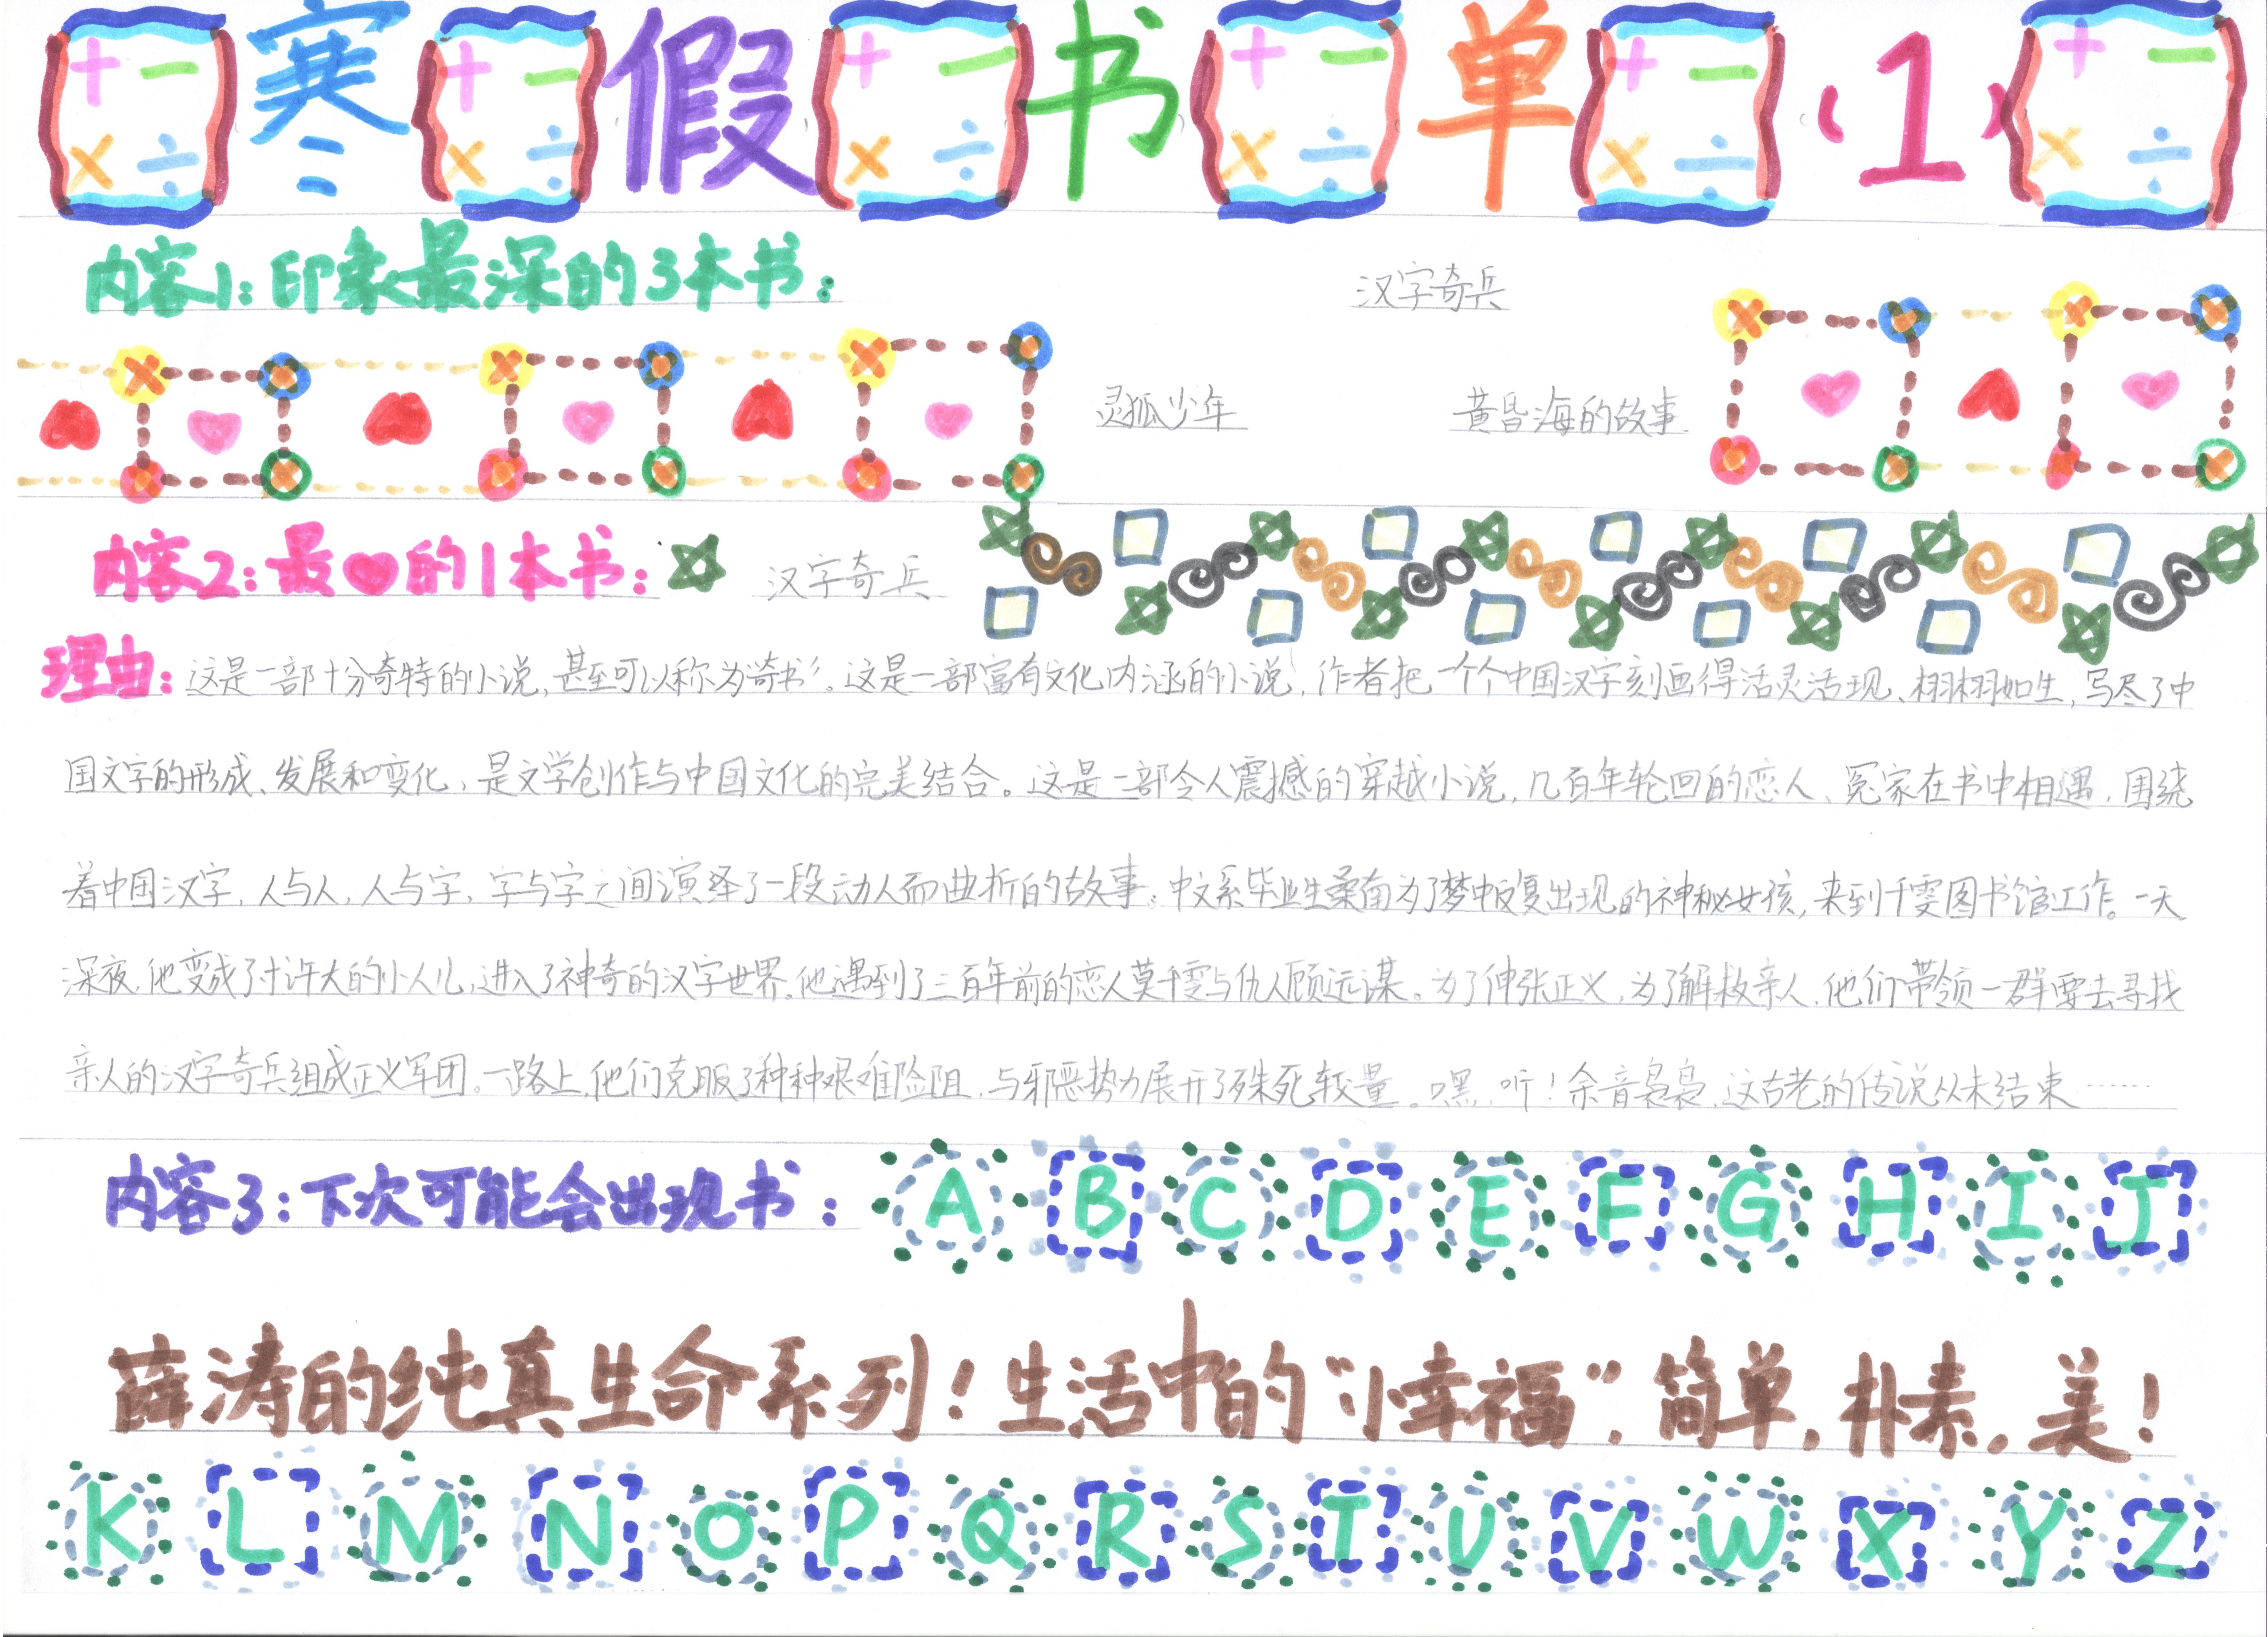 寒假书单（1）
内容1：印象最深的3本书：
汉字奇兵
灵狐少年 黄昏海的故事
内容2：最♥的1本书：汉字奇兵
理由：这是一部十分奇特的小说，甚至可以称为“奇书”。这是一部富有文化内涵的小说，作者把一个个中国汉字刻画得活灵活现、栩栩如生，写尽了中
国文字的形成、发展和变化，是文学创作与中国文化的完美结合。这是一部令人震撼的穿越小说，几百年轮回的恋人、冤家在书中相遇，围绕
着中国汉字，人与人，人与字，字与字之间演绎了一段动人而曲折的故事：中文系毕业生桑南为了梦中反复出现的神秘女孩，来到千雯图书馆工作。一天
深夜，他变成了寸许大的小人儿，进入了神奇的汉字世界。他遇到了三百年前的恋人莫千雯与仇人顾远谋。为了伸张正义，为了解救亲人，他们带领一群要去寻找
亲人的汉字奇兵组成正义军团。一路上，他们克服了种种艰难险阻，与邪恶势力展开了殊死较量。嘿，听！余音袅袅，这古老的传说从未结束……
内容3：下次可能会出现书：
A B C D E F G H I J
薛涛的纯真生命系列！生活中的“小幸福”：简单，朴素，美！
K L M N O P Q R S T U V W X Y Z